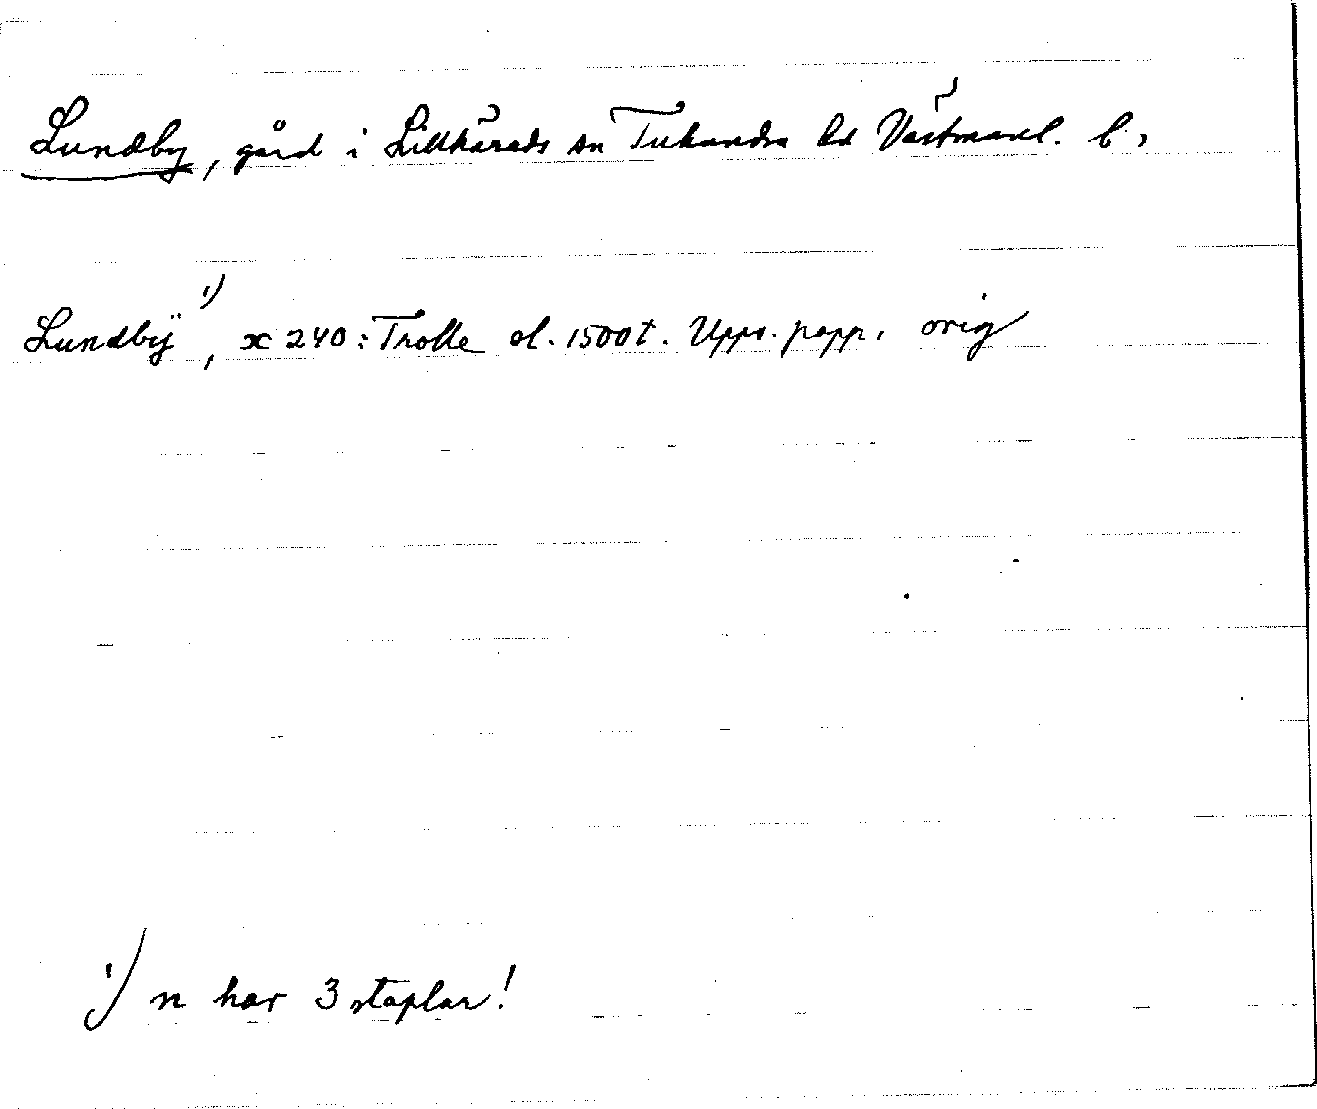 Lundby, gård i Lillhärads sn Tuhundra hd Västmanl. l.,
Lundbÿ ¹⁾, x 240: Trolle ol. 1500 t. Upps. papp. orig
¹⁾ n har 3 staplar!